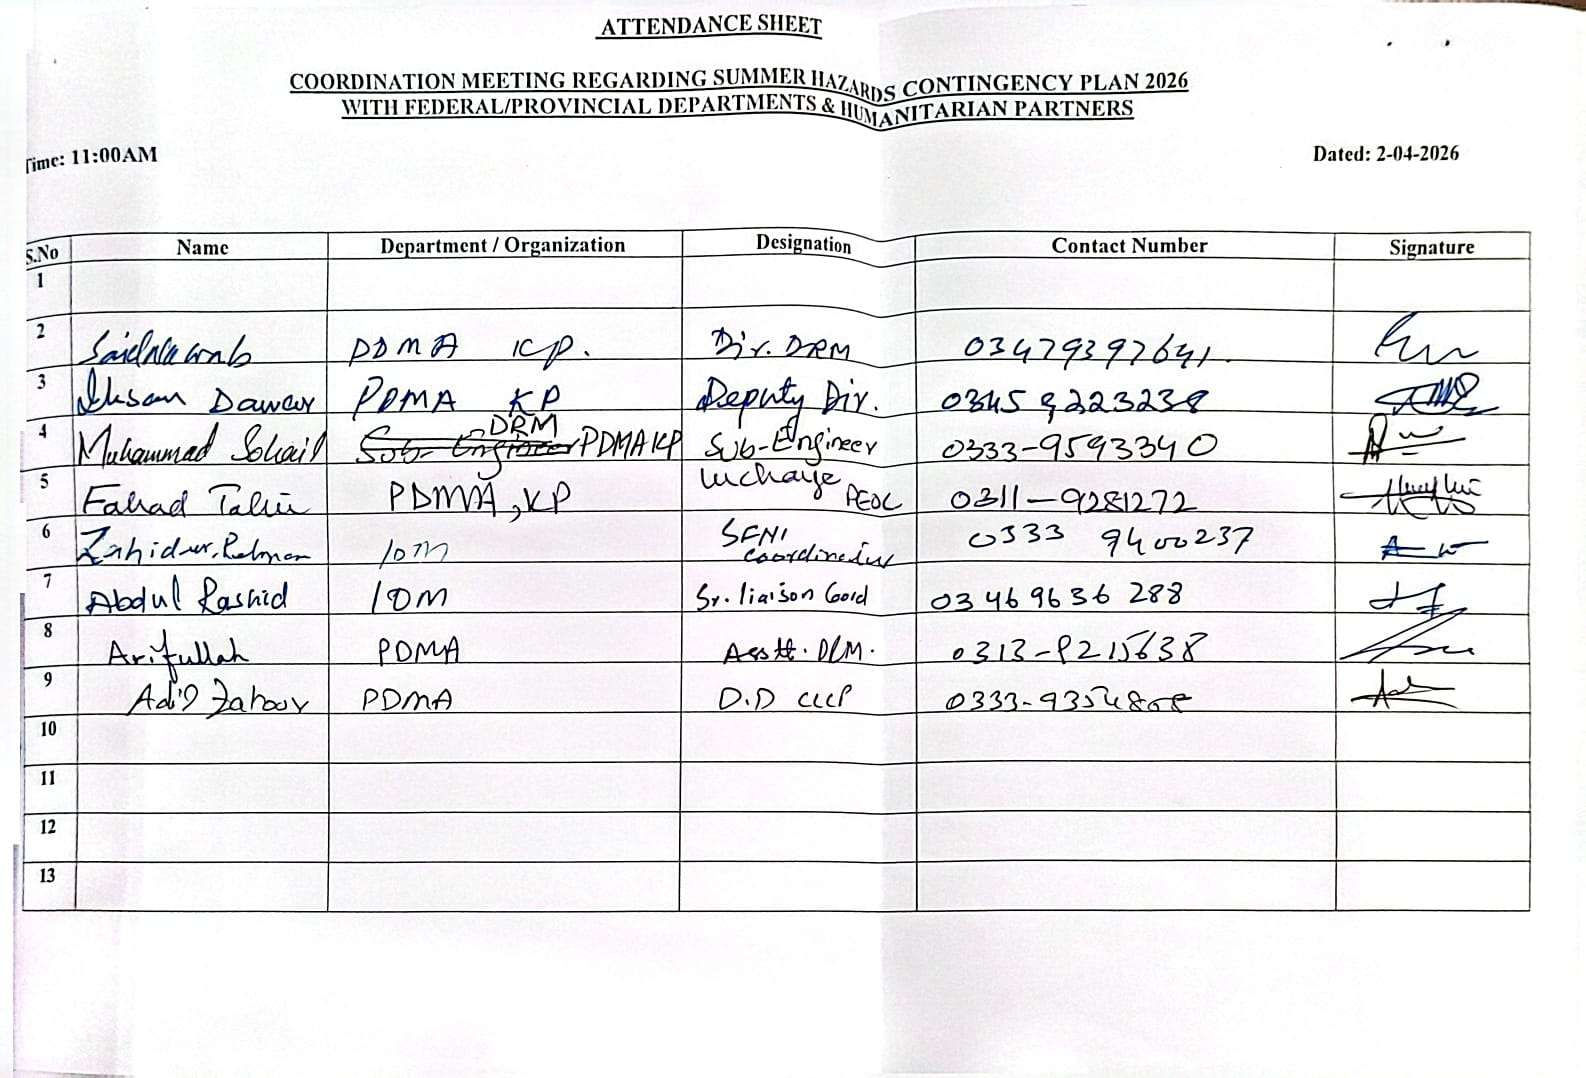 ATTENDANCE SHEET
COORDINATION MEETING REGARDING SUMMER HAZARDS CONTINGENCY PLAN 2026
WITH FEDERAL/PROVINCIAL DEPARTMENTS & HUMANITARIAN PARTNERS
Time: 11:00AM Dated: 2-04-2026
S.No Name Department / Organization Designation Contact Number Signature
1
2 PDMA KP. Dir. DRM 03479397641
3 Ihsan Dawar PDMA KP Deputy Dir. 03459223238
4 Muhammad Sohail Sub-Engineer DRM PDMA KP Sub-Engineer 0333-9593340
5 Fahad Tahir PDMA, KP Incharge PEOC 0311-9281272
6 Zahid ur Rehman IOM coordinator 0333 9400237
7 Abdul Rashid IOM Sr. liaison Cord 03469636 288
8 Arifullah PDMA 0313-9215638
9 Adil Zahoor PDMA D.D
10
11
12
13